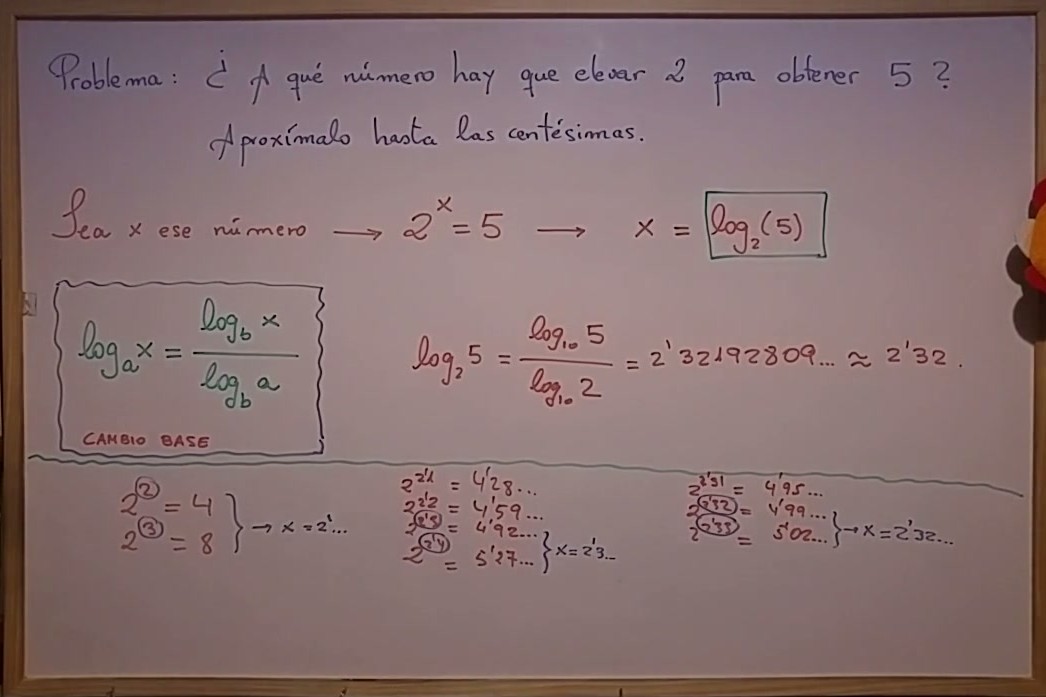 Problema: ¿A qué número hay que elevar 2 para obtener 5?
Aproxímalo hasta las centésimas.
Sea x ese número → 2^x = 5 → x = log₂(5)
logₐx = log_b x / log_b a
CAMBIO BASE
log₂5 = log₁₀5 / log₁₀2 = 2'32192809... ≈ 2'32.
2^② = 4
2^③ = 8
} → x = 2'...
2^2'1 = 4'28...
2^2'2 = 4'59...
2^2'3 = 4'92...
2^2'4 = 5'27...
} x = 2'3...
2^2'31 = 4'95...
2^2'32 = 4'99...
2^2'33 = 5'02...
} → x = 2'32...